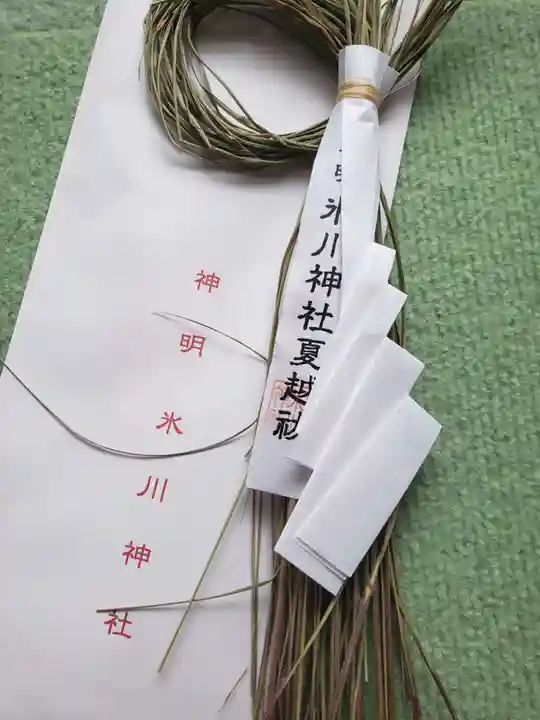 明氷川神社夏越祓
神明氷川神社